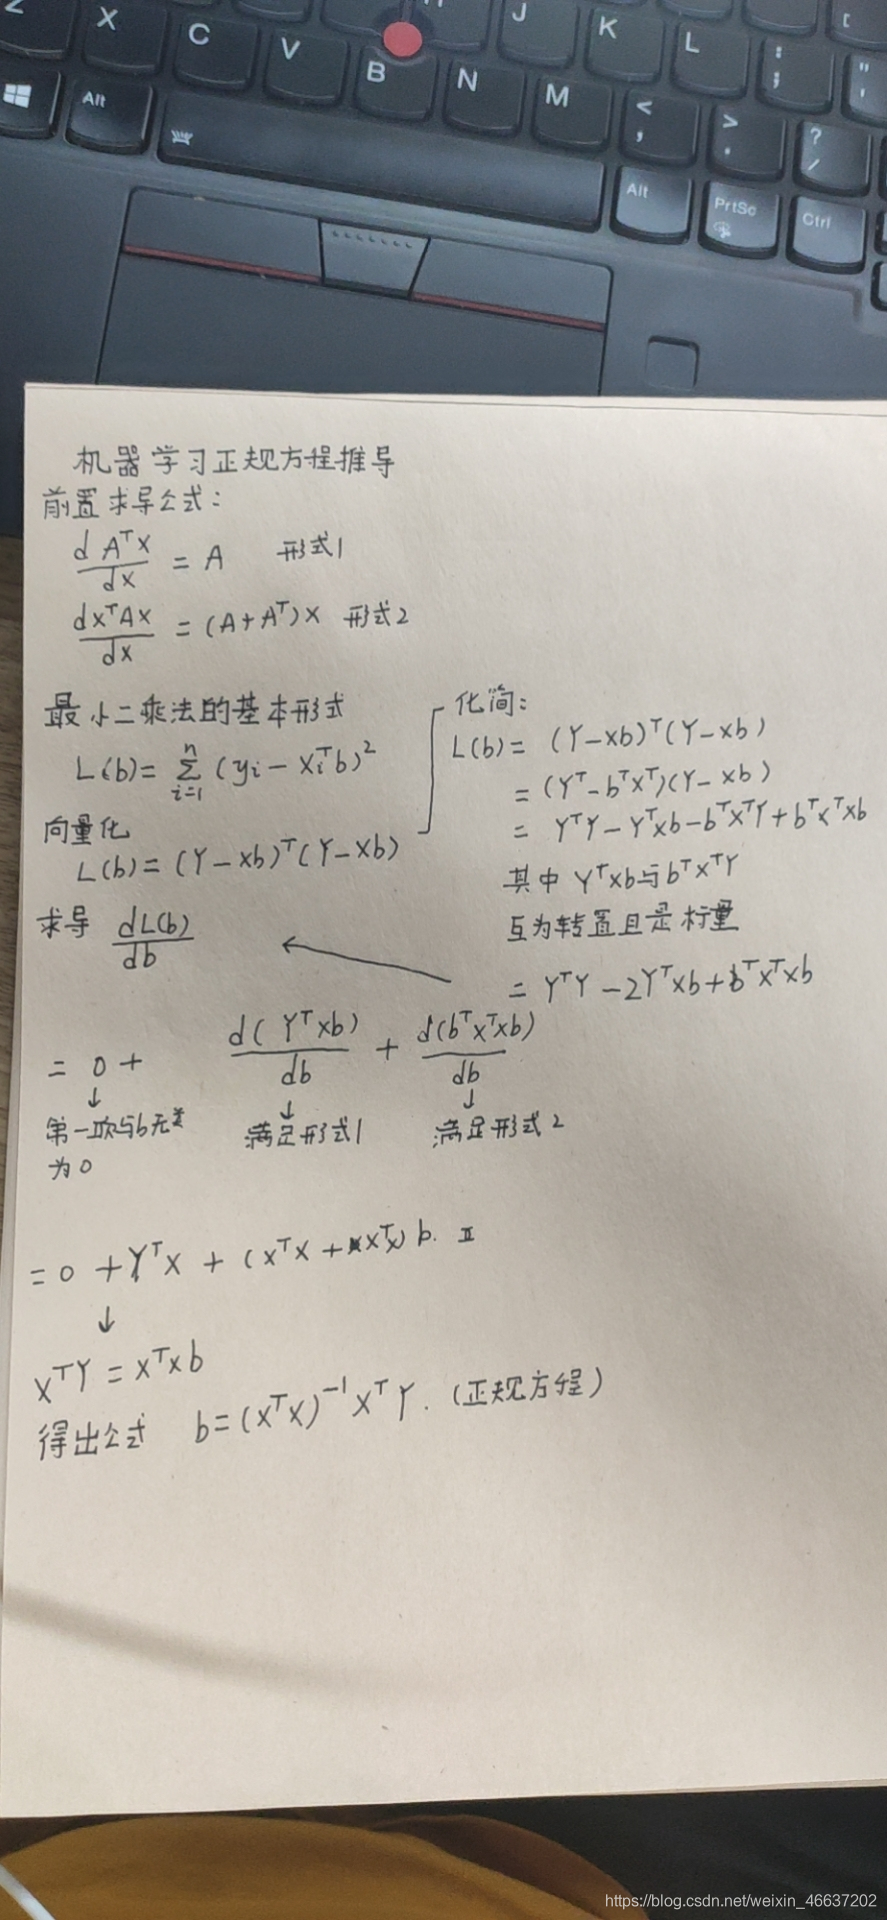 Z X C V B N M J K L : ; " '
Alt < , > . ? /
Alt PrtSc Ctrl
机器学习正规方程推导
前置求导公式：
dAᵀx/dx = A 形式1
dxᵀAx/dx = (A+Aᵀ)x 形式2
最小二乘法的基本形式
L(b)= Σⁿᵢ₌₁ (yi − xiᵀb)²
向量化
L(b)= (Y−xb)ᵀ(Y−xb)
化简：
L(b)= (Y−xb)ᵀ(Y−xb)
= (Yᵀ−bᵀxᵀ)(Y−xb)
= YᵀY − Yᵀxb − bᵀxᵀY + bᵀxᵀxb
其中 Yᵀxb与bᵀxᵀY
互为转置且是标量
= YᵀY − 2Yᵀxb + bᵀxᵀxb
求导 dL(b)/db ←
= 0 + d(Yᵀxb)/db + d(bᵀxᵀxb)/db
↓ ↓ ↓
第一项与b无关 满足形式1 满足形式2
为0
= 0 + Yᵀx + (xᵀx + xᵀx) b.
↓
xᵀY = xᵀxb
得出公式 b=(xᵀx)⁻¹xᵀY. (正规方程)
https://blog.csdn.net/weixin_46637202